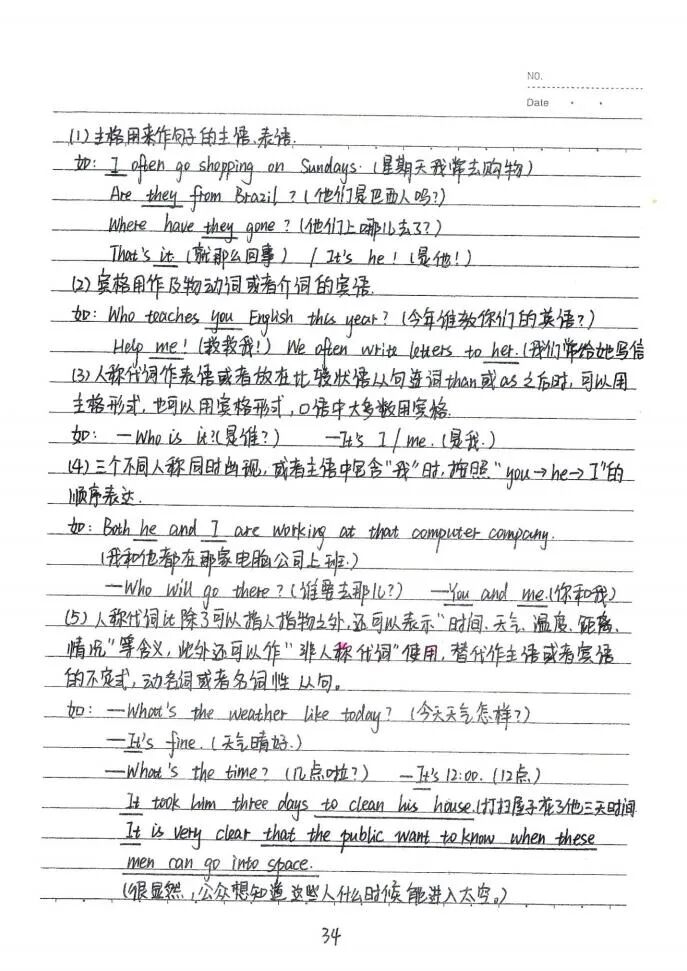 NO.
Date
(1) 主格用来作句子的主语、表语.
如: I often go shopping on Sundays. (星期天我常去购物)
Are they from Brazil? (他们是巴西人吗?)
Where have they gone? (他们上哪儿去了?)
That's it. (就那么回事) / It's he! (是他!)
(2) 宾格用作及物动词或者介词的宾语.
如: Who teaches you English this year? (今年谁教你们的英语?)
Help me! (救救我!) We often write letters to her. (我们常给她写信
(3) 人称代词作表语或者放在比较状语从句连词than或as之后时, 可以用
主格形式, 也可以用宾格形式, 口语中大多数用宾格.
如: —Who is it? (是谁?) —It's I / me. (是我.)
(4) 三个不同人称同时出现, 或者主语中包含"我"时, 按照"you→he→I"的
顺序表达.
如: Both he and I are working at that computer company.
(我和他都在那家电脑公司上班.)
—Who will go there? (谁要去那儿?) —You and me. (你和我)
(5) 人称代词it除了可以指人指物之外, 还可以表示"时间、天气、温度、距离、
情况"等含义, 此外还可以作"非人称代词"使用, 替代作主语或者宾语
的不定式, 动名词或者名词性从句。
如: —What's the weather like today? (今天天气怎样?)
—It's fine. (天气晴好.)
—What's the time? (几点啦?) —It's 12:00. (12点)
It took him three days to clean his house. (打扫屋子花了他三天时间
It is very clear that the public want to know when these
men can go into space.
(很显然, 公众想知道这些人什么时候能进入太空。)
34